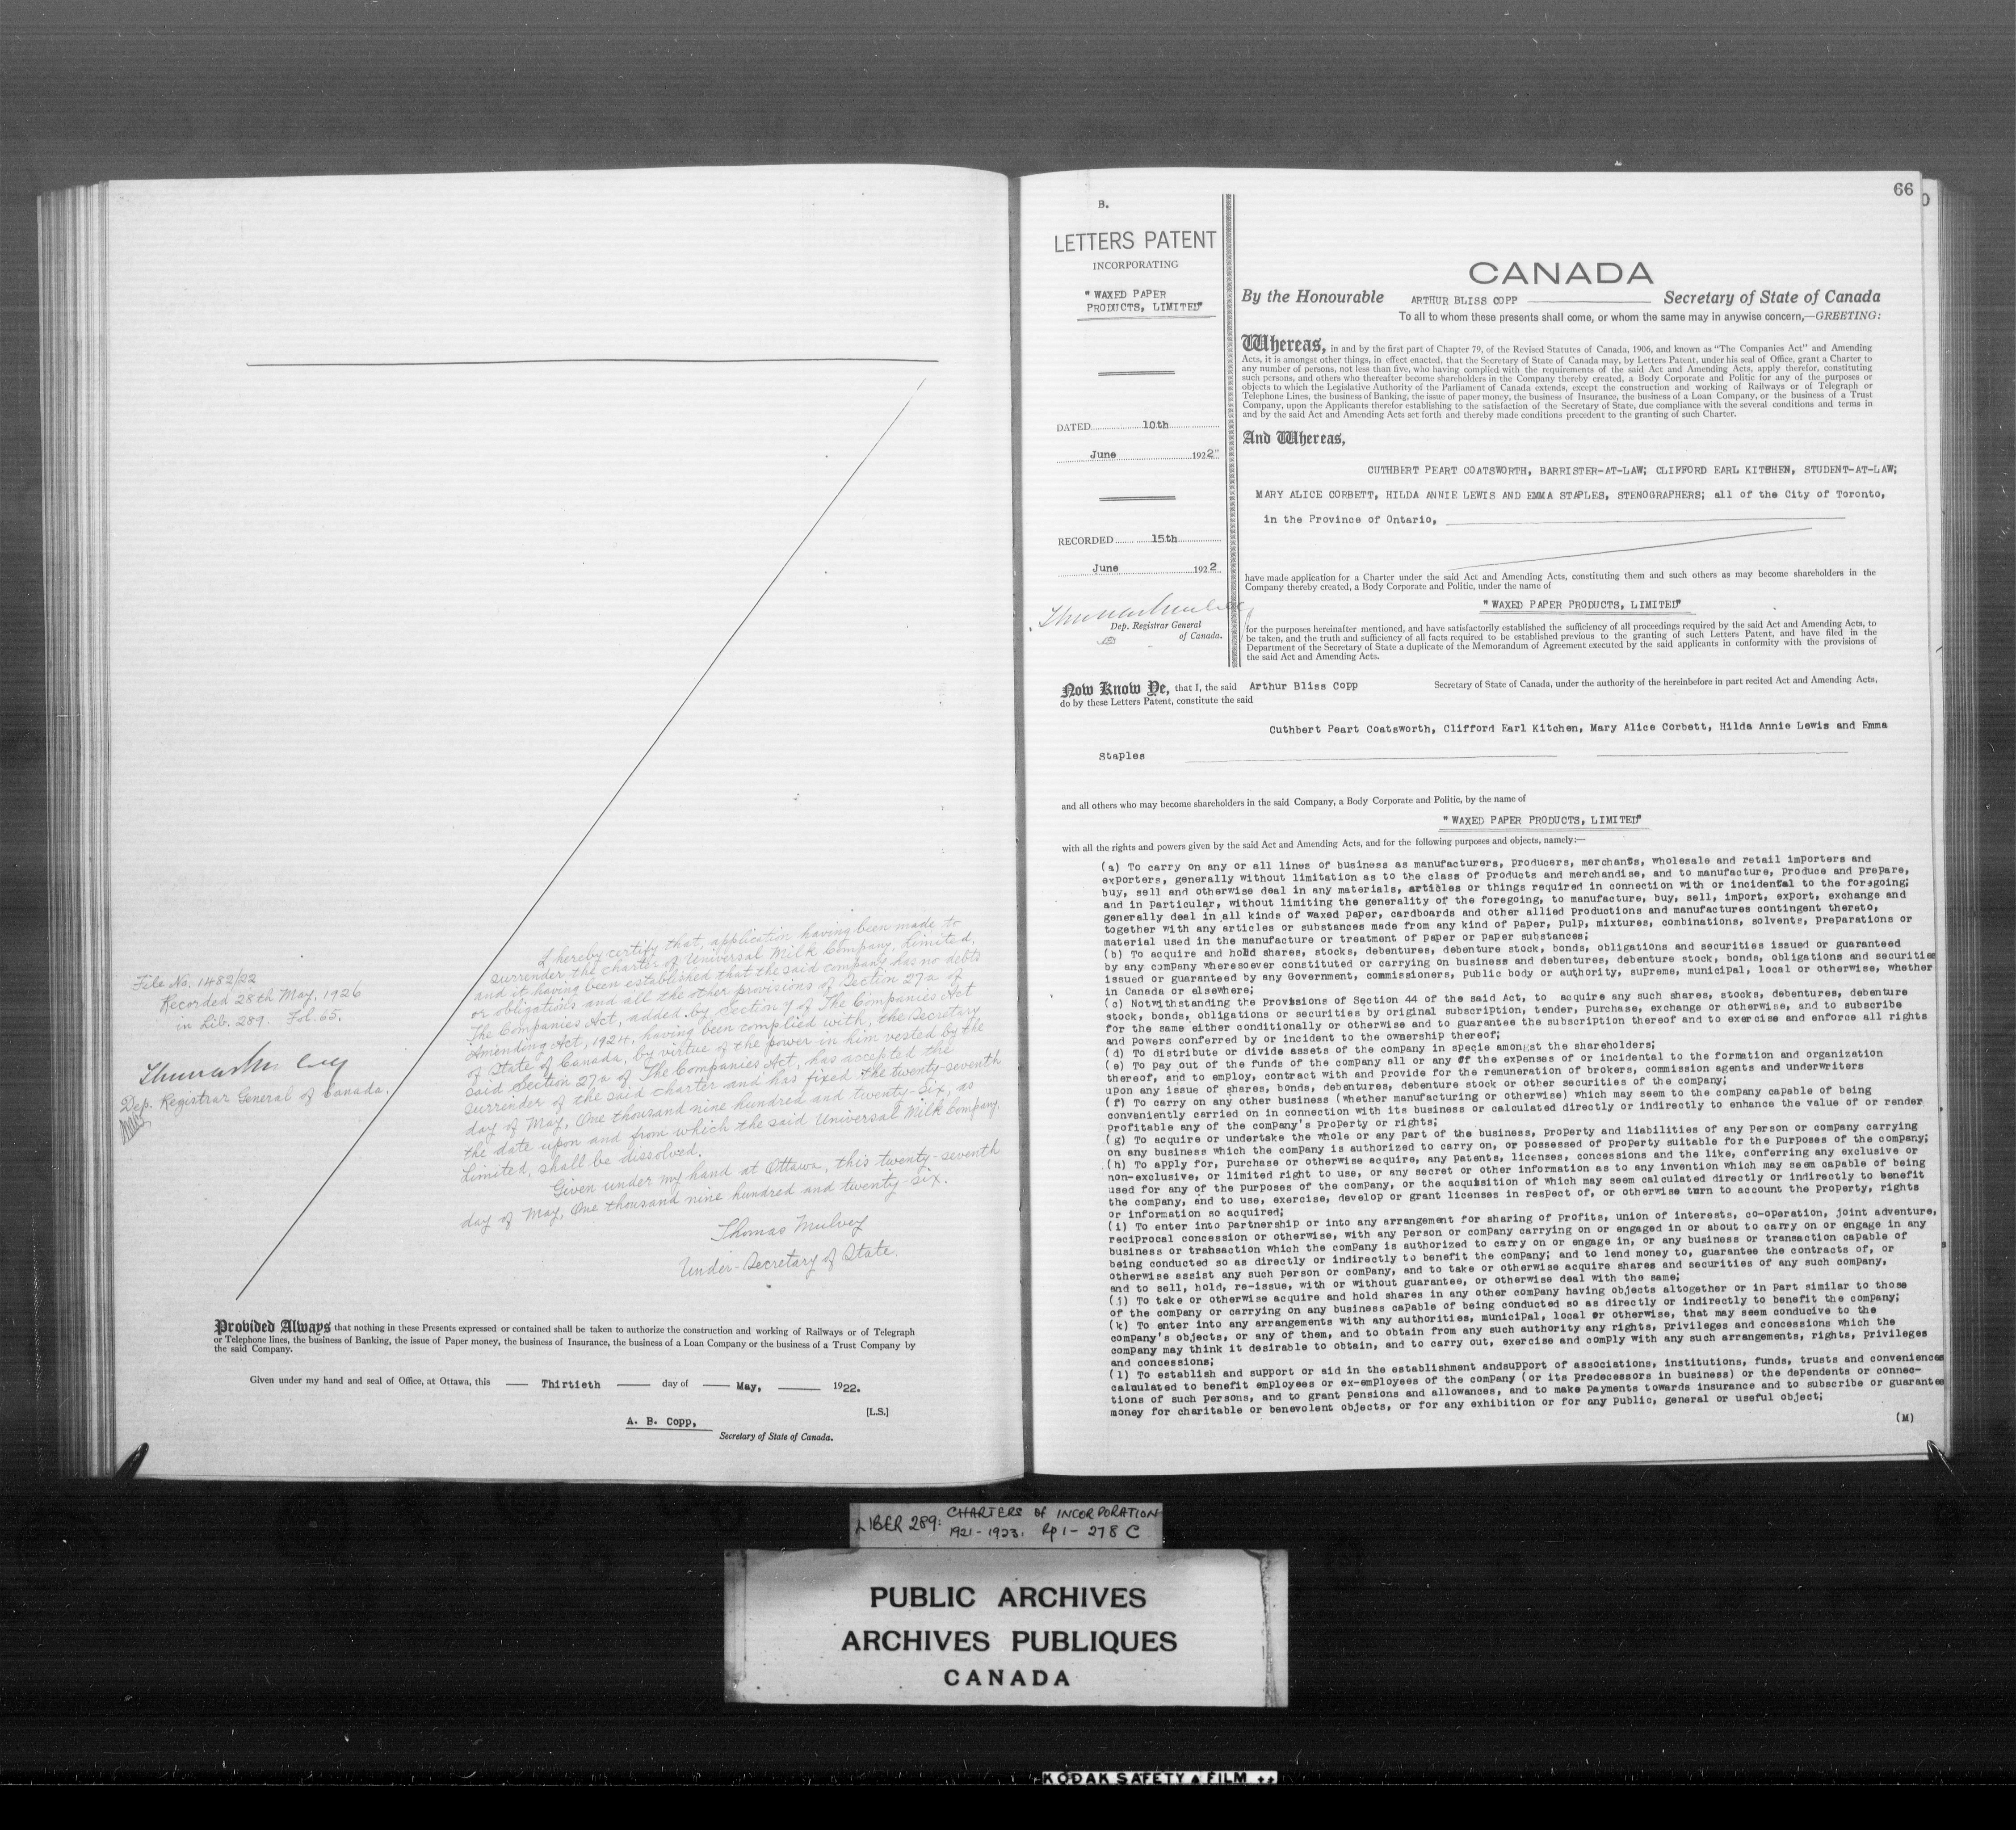 I hereby certify that, application having been made to
surrender the charter of Universal Milk Company, Limited,
and it having been established that the said company has no debts
or obligations and all the other provisions of Section 27a of
The Companies Act, added by Section 7 of The Companies Act
Amending Act, 1924, having been complied with, the Secretary
of State of Canada, by virtue of the power in him vested by the
said Section 27a of The Companies Act, has accepted the
surrender of the said charter and has fixed the twenty-seventh
day of May, One thousand nine hundred and twenty-six, as
the date upon and from which the said Universal Milk Company,
Limited, shall be dissolved.
Given under my hand at Ottawa, this twenty-seventh
day of May, One thousand nine hundred and twenty-six.
Thomas Mulvey
Under-Secretary of State.
File No. 1482/22
Recorded 28th May, 1926
in Lib. 289. Fol. 65.
Thomas Mulvey
Dep. Registrar General of Canada.
Provided Always that nothing in these Presents expressed or contained shall be taken to authorize the construction and working of Railways or of Telegraph
or Telephone lines, the business of Banking, the issue of Paper money, the business of Insurance, the business of a Loan Company or the business of a Trust Company by
the said Company.
Given under my hand and seal of Office, at Ottawa, this Thirtieth day of May, 1922.
[L.S.]
A. B. Copp,
Secretary of State of Canada.
66
B.
LETTERS PATENT
INCORPORATING
"WAXED PAPER
PRODUCTS, LIMITED"
DATED 10th
June 1922
RECORDED 15th
June 1922
Thomas Mulvey
Dep. Registrar General
of Canada.
CANADA
By the Honourable ARTHUR BLISS COPP Secretary of State of Canada
To all to whom these presents shall come, or whom the same may in anywise concern,—GREETING:
Whereas, in and by the first part of Chapter 79, of the Revised Statutes of Canada, 1906, and known as "The Companies Act" and Amending
Acts, it is amongst other things, in effect enacted, that the Secretary of State of Canada may, by Letters Patent, under his seal of Office, grant a Charter to
any number of persons, not less than five, who having complied with the requirements of the said Act and Amending Acts, apply therefor, constituting
such persons, and others who thereafter become shareholders in the Company thereby created, a Body Corporate and Politic for any of the purposes or
objects to which the Legislative Authority of the Parliament of Canada extends, except the construction and working of Railways or of Telegraph or
Telephone Lines, the business of Banking, the issue of paper money, the business of Insurance, the business of a Loan Company, or the business of a Trust
Company, upon the Applicants therefor establishing to the satisfaction of the Secretary of State, due compliance with the several conditions and terms in
and by the said Act and Amending Acts set forth and thereby made conditions precedent to the granting of such Charter.
And Whereas,
CUTHBERT PEART COATSWORTH, BARRISTER-AT-LAW; CLIFFORD EARL KITCHEN, STUDENT-AT-LAW;
MARY ALICE CORBETT, HILDA ANNIE LEWIS AND EMMA STAPLES, STENOGRAPHERS; all of the City of Toronto,
in the Province of Ontario,
have made application for a Charter under the said Act and Amending Acts, constituting them and such others as may become shareholders in the
Company thereby created, a Body Corporate and Politic, under the name of
"WAXED PAPER PRODUCTS, LIMITED"
for the purposes hereinafter mentioned, and have satisfactorily established the sufficiency of all proceedings required by the said Act and Amending Acts, to
be taken, and the truth and sufficiency of all facts required to be established previous to the granting of such Letters Patent, and have filed in the
Department of the Secretary of State a duplicate of the Memorandum of Agreement executed by the said applicants in conformity with the provisions of
the said Act and Amending Acts.
Now Know Ye, that I, the said Arthur Bliss Copp Secretary of State of Canada, under the authority of the hereinbefore in part recited Act and Amending Acts,
do by these Letters Patent, constitute the said
Cuthbert Peart Coatsworth, Clifford Earl Kitchen, Mary Alice Corbett, Hilda Annie Lewis and Emma
Staples
and all others who may become shareholders in the said Company, a Body Corporate and Politic, by the name of
"WAXED PAPER PRODUCTS, LIMITED"
with all the rights and powers given by the said Act and Amending Acts, and for the following purposes and objects, namely:—
(a) To carry on any or all lines of business as manufacturers, producers, merchants, wholesale and retail importers and
exporters, generally without limitation as to the class of products and merchandise, and to manufacture, produce and prepare,
buy, sell and otherwise deal in any materials, articles or things required in connection with or incidental to the foregoing;
and in particular, without limiting the generality of the foregoing, to manufacture, buy, sell, import, export, exchange and
generally deal in all kinds of waxed paper, cardboards and other allied productions and manufactures contingent thereto,
together with any articles or substances made from any kind of paper, pulp, mixtures, combinations, solvents, preparations or
material used in the manufacture or treatment of paper or paper substances;
(b) To acquire and hold shares, stocks, debentures, debenture stock, bonds, obligations and securities issued or guaranteed
by any company wheresoever constituted or carrying on business and debentures, debenture stock, bonds, obligations and securities
issued or guaranteed by any Government, commissioners, public body or authority, supreme, municipal, local or otherwise, whether
in Canada or elsewhere;
(c) Notwithstanding the Provisions of Section 44 of the said Act, to acquire any such shares, stocks, debentures, debenture
stock, bonds, obligations or securities by original subscription, tender, purchase, exchange or otherwise, and to subscribe
for the same either conditionally or otherwise and to guarantee the subscription thereof and to exercise and enforce all rights
and powers conferred by or incident to the ownership thereof;
(d) To distribute or divide assets of the company in specie amongst the shareholders;
(e) To pay out of the funds of the company all or any of the expenses of or incidental to the formation and organization
thereof, and to employ, contract with and provide for the remuneration of brokers, commission agents and underwriters
upon any issue of shares, bonds, debentures, debenture stock or other securities of the company;
(f) To carry on any other business (whether manufacturing or otherwise) which may seem to the company capable of being
conveniently carried on in connection with its business or calculated directly or indirectly to enhance the value of or render
profitable any of the company's property or rights;
(g) To acquire or undertake the whole or any part of the business, property and liabilities of any person or company carrying
on any business which the company is authorized to carry on, or possessed of property suitable for the purposes of the company;
(h) To apply for, purchase or otherwise acquire, any patents, licenses, concessions and the like, conferring any exclusive or
non-exclusive, or limited right to use, or any secret or other information as to any invention which may seem capable of being
used for any of the purposes of the company, or the acquisition of which may seem calculated directly or indirectly to benefit
the company, and to use, exercise, develop or grant licenses in respect of, or otherwise turn to account the property, rights
or information so acquired;
(i) To enter into partnership or into any arrangement for sharing of profits, union of interests, co-operation, joint adventure,
reciprocal concession or otherwise, with any person or company carrying on or engaged in or about to carry on or engage in any
business or transaction which the company is authorized to carry on or engage in, or any business or transaction capable of
being conducted so as directly or indirectly to benefit the company; and to lend money to, guarantee the contracts of, or
otherwise assist any such person or company, and to take or otherwise acquire shares and securities of any such company,
and to sell, hold, re-issue, with or without guarantee, or otherwise deal with the same;
(j) To take or otherwise acquire and hold shares in any other company having objects altogether or in part similar to those
of the company or carrying on any business capable of being conducted so as directly or indirectly to benefit the company;
(k) To enter into any arrangements with any authorities, municipal, local or otherwise, that may seem conducive to the
company's objects, or any of them, and to obtain from any such authority any rights, privileges and concessions which the
company may think it desirable to obtain, and to carry out, exercise and comply with any such arrangements, rights, privileges
and concessions;
(l) To establish and support or aid in the establishment andsupport of associations, institutions, funds, trusts and conveniences
calculated to benefit employees or ex-employees of the company (or its predecessors in business) or the dependents or connec-
tions of such persons, and to grant pensions and allowances, and to make payments towards insurance and to subscribe or guarantee
money for charitable or benevolent objects, or for any exhibition or for any public, general or useful object;
(M)
LIBER 289: CHARTERS OF INCORPORATION
1921-1923. Pp 1-278 C
PUBLIC ARCHIVES
ARCHIVES PUBLIQUES
CANADA
KODAK SAFETY FILM